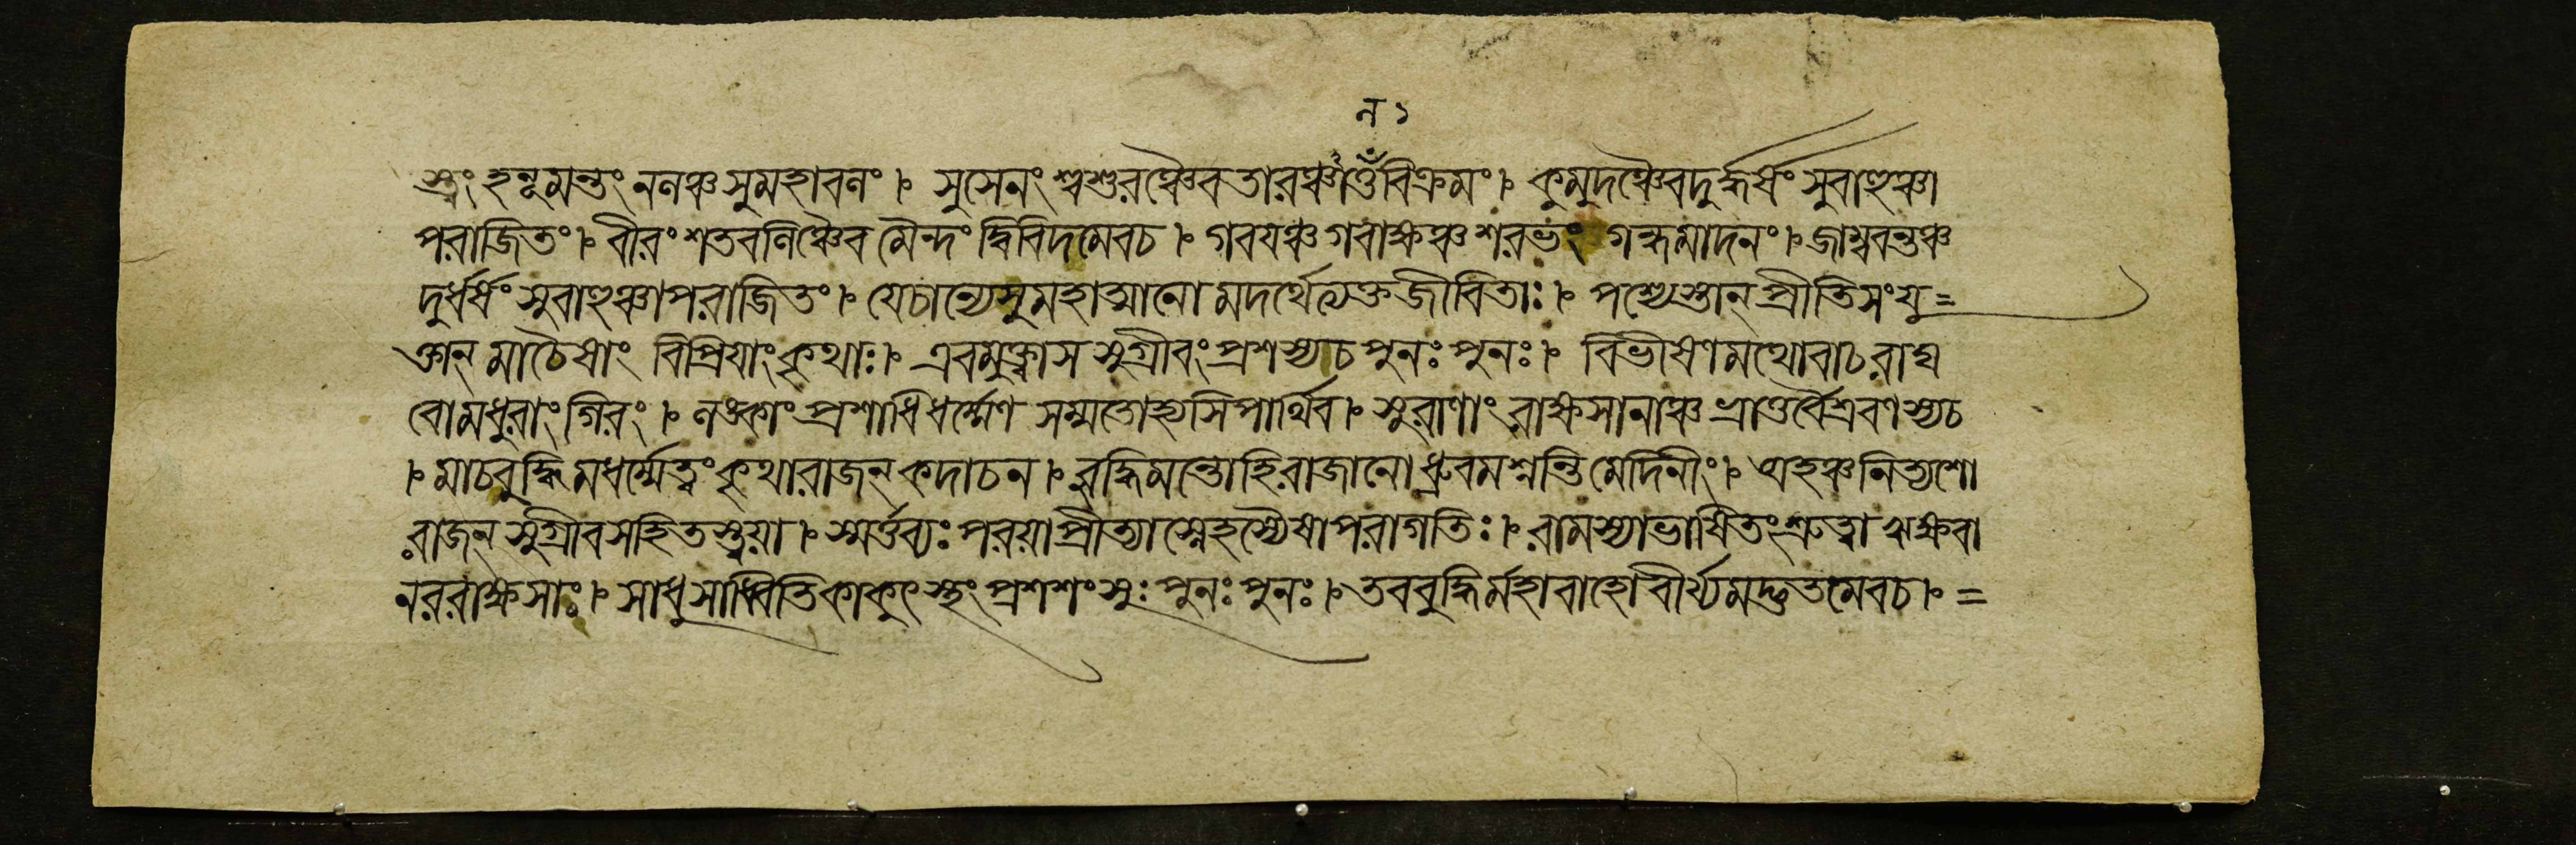 ন ১
স্ত্বং হনূমন্তং নলঞ্চ সুমহাবলং । সুসেনং শ্বশুরঞ্চৈব তারঞ্চাতুলবিক্রমং । কুমুদঞ্চৈব দুর্দ্ধর্ষং সুবাহুঞ্চা
পরাজিতং । বীরং শতবলিঞ্চৈব মৈন্দং দ্বিবিদমেবচ । গবয়ঞ্চ গবাক্ষঞ্চ শরভং গন্ধমাদনং । জাম্ববন্তঞ্চ
দুর্ধর্ষং সুবাহুঞ্চাপরাজিতং । যেচান্যে সুমহাত্মানো মদর্থে ত্যক্তজীবিতাঃ । পশ্যেস্তান্ প্রীতিসংযু=
ক্তান্ মাচৈষাং বিপ্রিয়াং কৃথাঃ । এবমুক্ত্বাস সুগ্রীবং প্রশস্যচ পুনঃ পুনঃ । বিভীষণমথোবাচ রাঘ
বো মধুরাং গিরং । লঙ্কাং প্রশাধি ধর্ম্মেণ সম্মতোহ্যসি পার্থিব । সুরাণাং রাক্ষসানাঞ্চ ভ্রাতুর্বৈশ্রবণস্যচ
। মাচ বুদ্ধিমধর্ম্মেত্বং কৃথা রাজন্ কদাচন । বুদ্ধিমন্তোহি রাজানো ধ্রুবমশ্নন্তি মেদিনীং । অহঞ্চ নিত্যশো
রাজন্ সুগ্রীবসহিতস্ত্বয়া । স্মর্ত্তব্যঃ পরয়া প্রীত্যা স্নেহস্যৈষা পরাগতিঃ । রামস্যাভাষিতং শ্রুত্বা ঋক্ষবা
নররাক্ষসাঃ । সাধু সাধ্বিতি কাকুৎস্থং প্রশশংসুঃ পুনঃ পুনঃ । তব বুদ্ধির্মহাবাহো বীর্য্যমদ্ভুতমেবচ । =